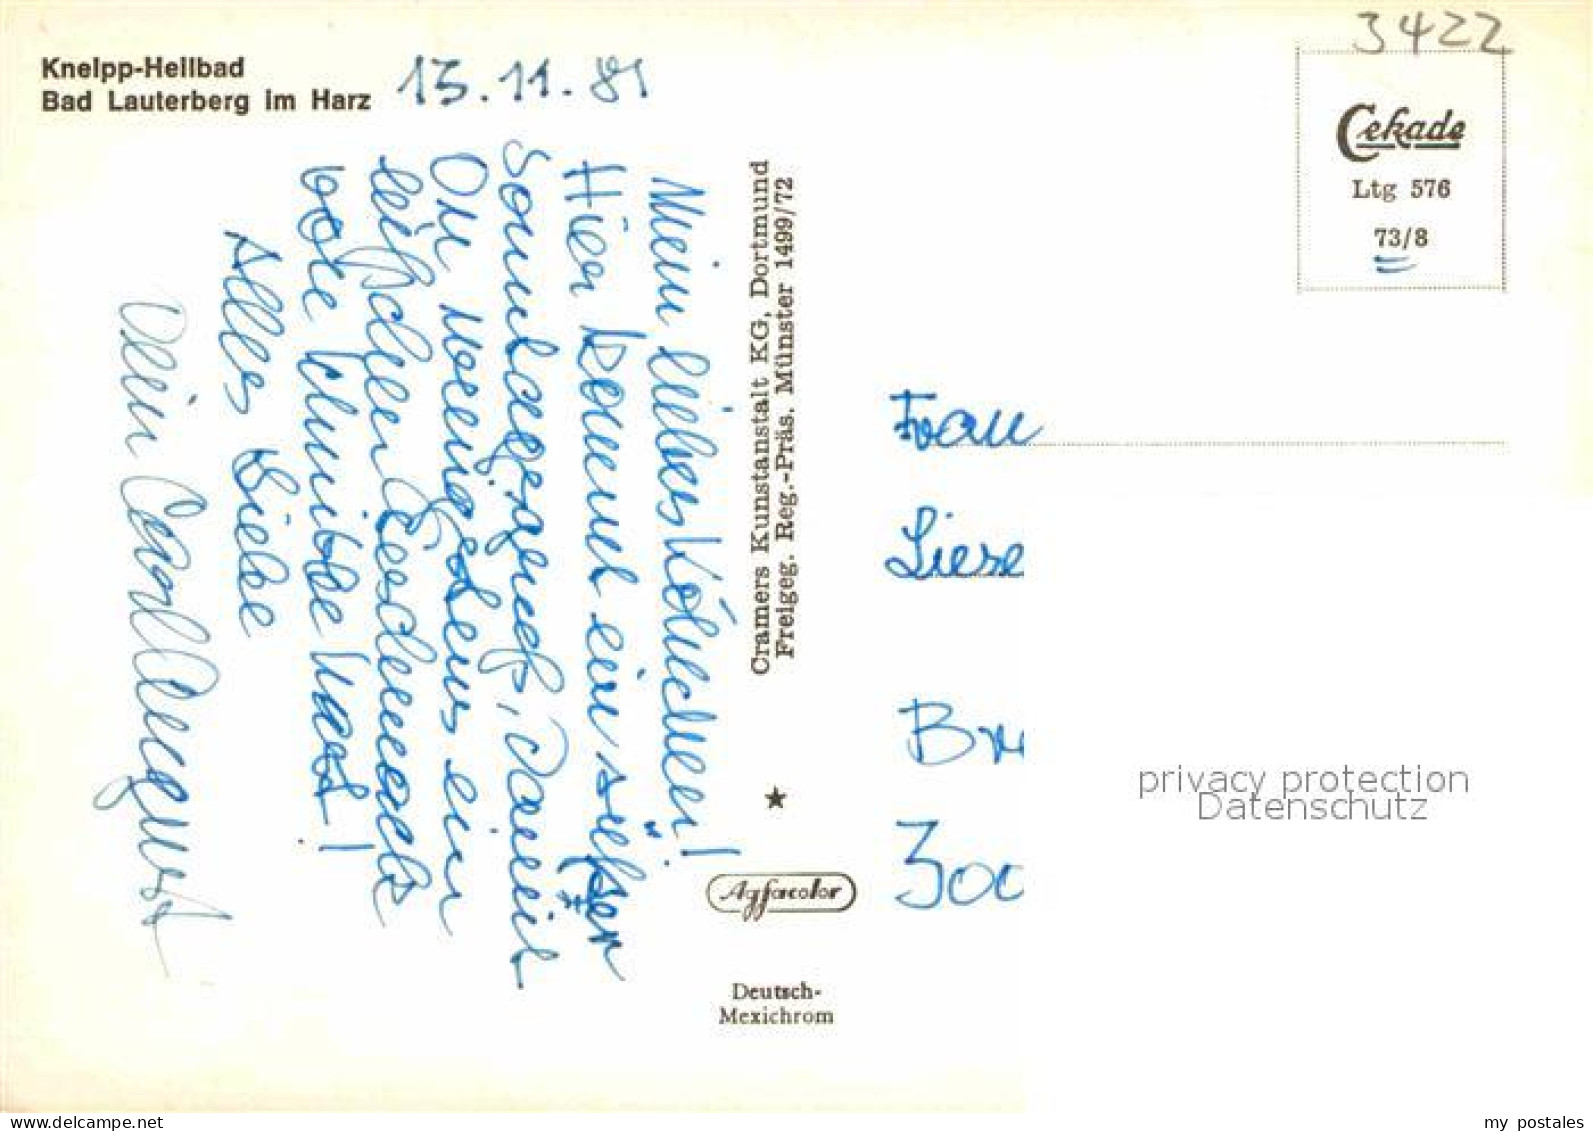 Kneipp-Heilbad
Bad Lauterberg im Harz
13.11.81
Mein liebes Könichen!
Hier kommt ein süßer
Sonntagsgruß, damit
Du wenigstens ein
bißchen Geschmack
Alles Liebe
Dein Carl August
Cramers Kunstanstalt KG, Dortmund
Freigeg. Reg.-Präs. Münster 1499/72
Agfacolor
Deutsch-
Mexichrom
3422
Cekade
Ltg 576
73/8
Frau
Liese
Br
300
privacy protection
Datenschutz
www.delcampe.net
my_postales